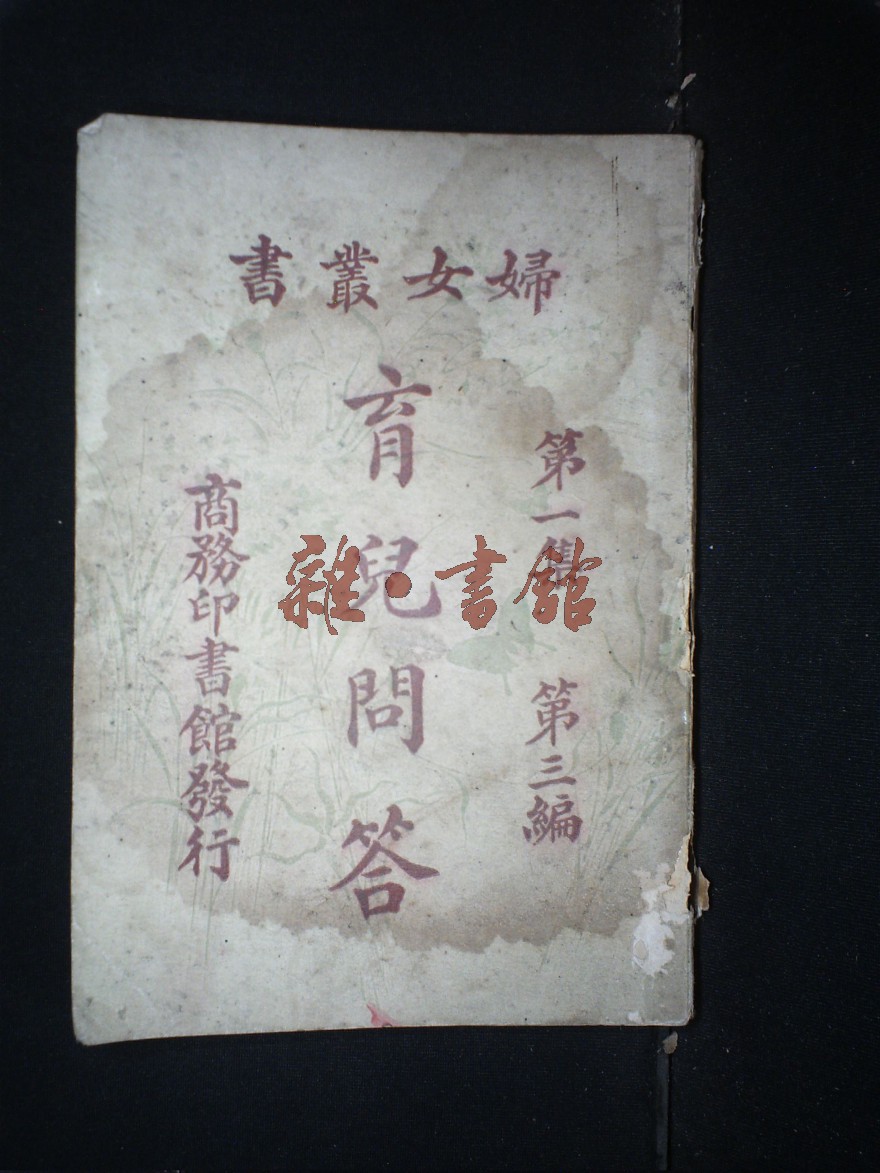 婦女叢書
第一集 第三編
育兒問答
商務印書館發行
雜·書館